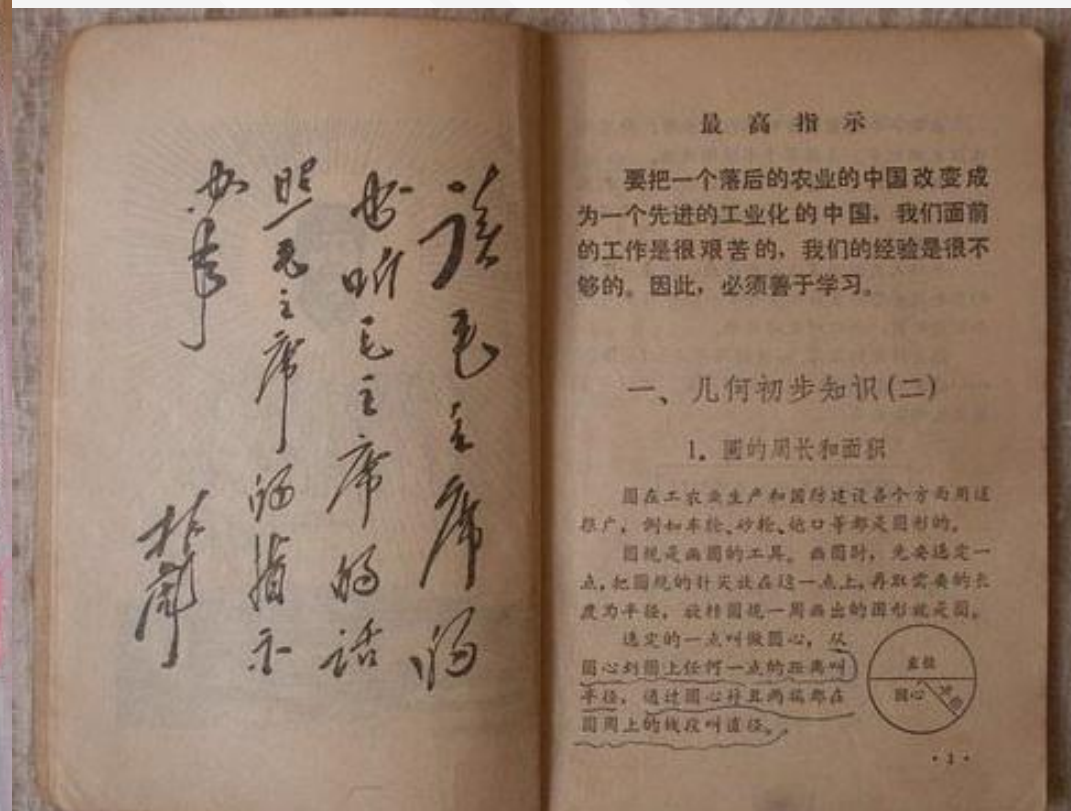 读毛主席的
书听毛主席的话
照毛主席的指示
办事
林彪
最高指示
要把一个落后的农业的中国改变成
为一个先进的工业化的中国，我们面前
的工作是很艰苦的，我们的经验是很不
够的。因此，必须善于学习。
一、几何初步知识(二)
1. 圆的周长和面积
圆在工农业生产和国防建设各个方面用途
很广，例如车轮、砂轮、炮口等都是圆形的。
圆规是画圆的工具。画圆时，先要选定一
点，把圆规的针尖放在这一点上，再取需要的长
度为半径，旋转圆规一周画出的图形就是圆。
选定的一点叫做圆心，从
圆心到圆上任何一点的距离叫
半径，通过圆心并且两端都在
圆周上的线段叫直径。
直径
圆心
半径
·1·